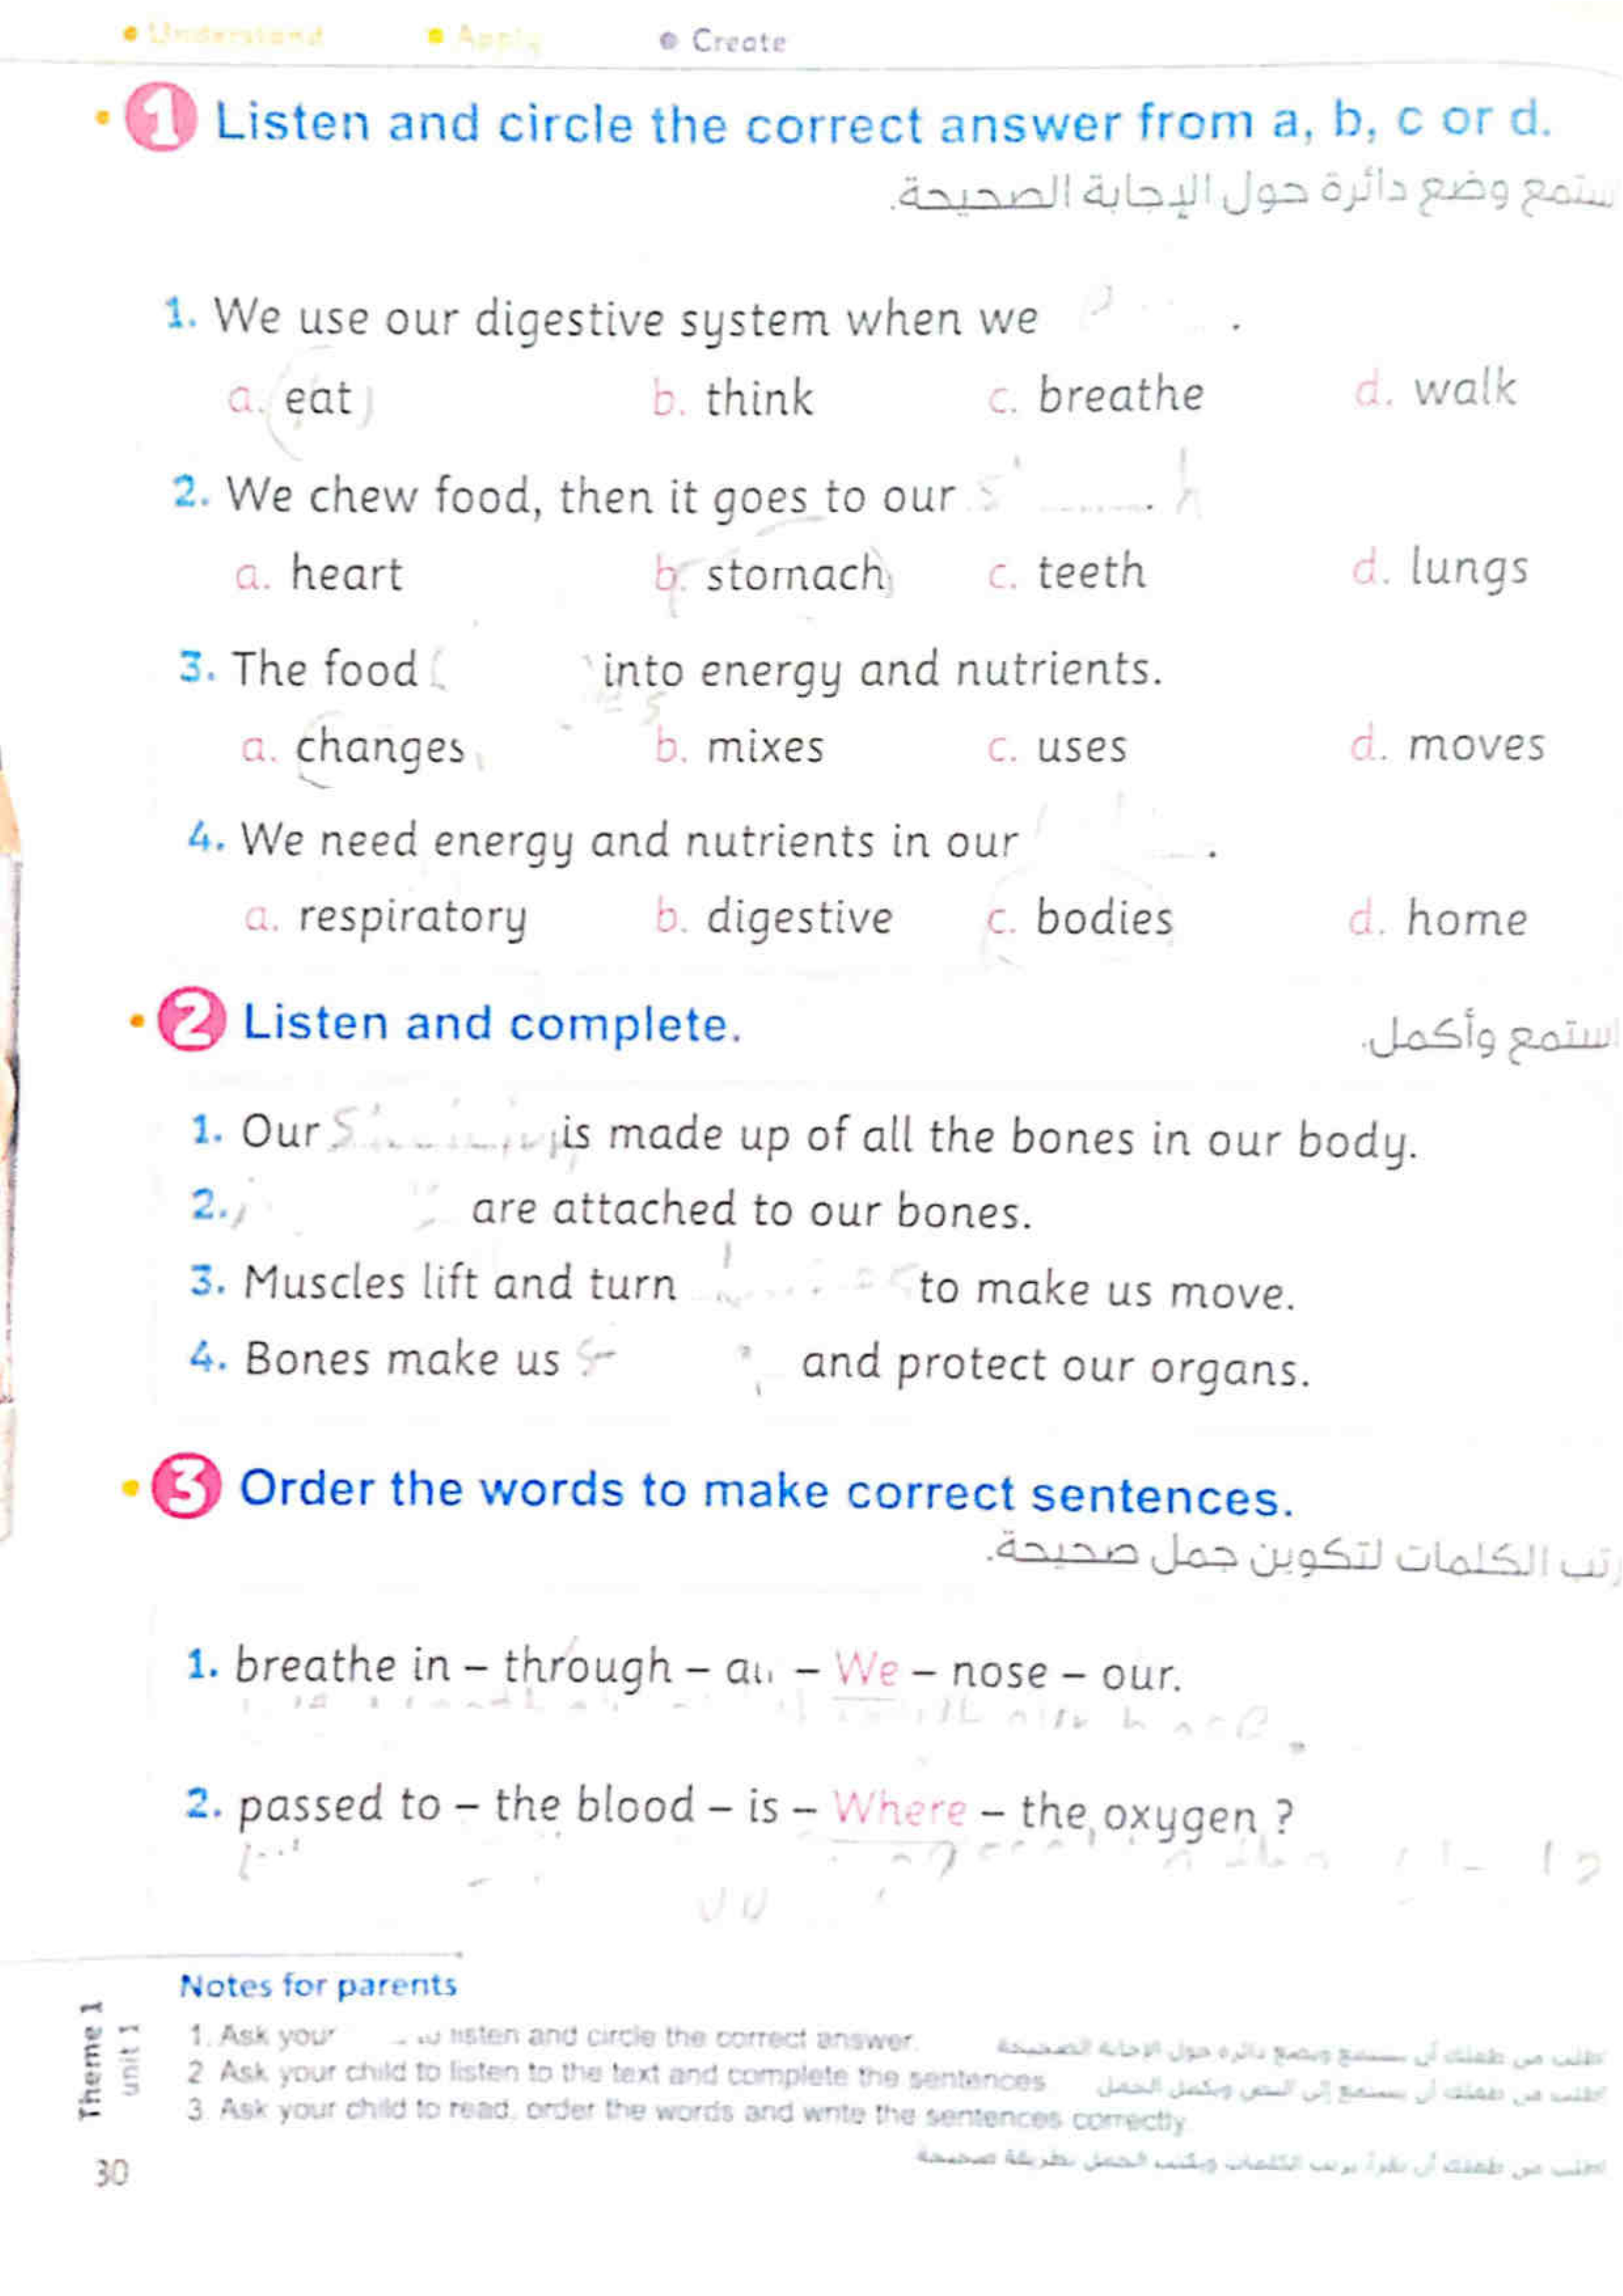 Understand Apply Create
1 Listen and circle the correct answer from a, b, c or d.
استمع وضع دائرة حول الإجابة الصحيحة.
1. We use our digestive system when we .
a. eat b. think c. breathe d. walk
2. We chew food, then it goes to our .
a. heart b. stomach c. teeth d. lungs
3. The food into energy and nutrients.
a. changes b. mixes c. uses d. moves
4. We need energy and nutrients in our .
a. respiratory b. digestive c. bodies d. home
2 Listen and complete.
استمع وأكمل.
1. Our is made up of all the bones in our body.
2. are attached to our bones.
3. Muscles lift and turn to make us move.
4. Bones make us and protect our organs.
3 Order the words to make correct sentences.
رتب الكلمات لتكوين جمل صحيحة.
1. breathe in – through – – We – nose – our.
2. passed to – the blood – is – Where – the oxygen ?
Notes for parents
1. Ask your listen and circle the correct answer.
اطلب من طفلك أن يستمع ويضع دائرة حول الإجابة الصحيحة
2 Ask your child to listen to the text and complete the sentences
اطلب من طفلك أن يستمع إلى النص ويكمل الجمل
3. Ask your child to read, order the words and write the sentences correctly
اطلب من طفلك أن يقرأ يرتب الكلمات ويكتب الجمل بطريقة صحيحة
Theme 1
unit 1
30